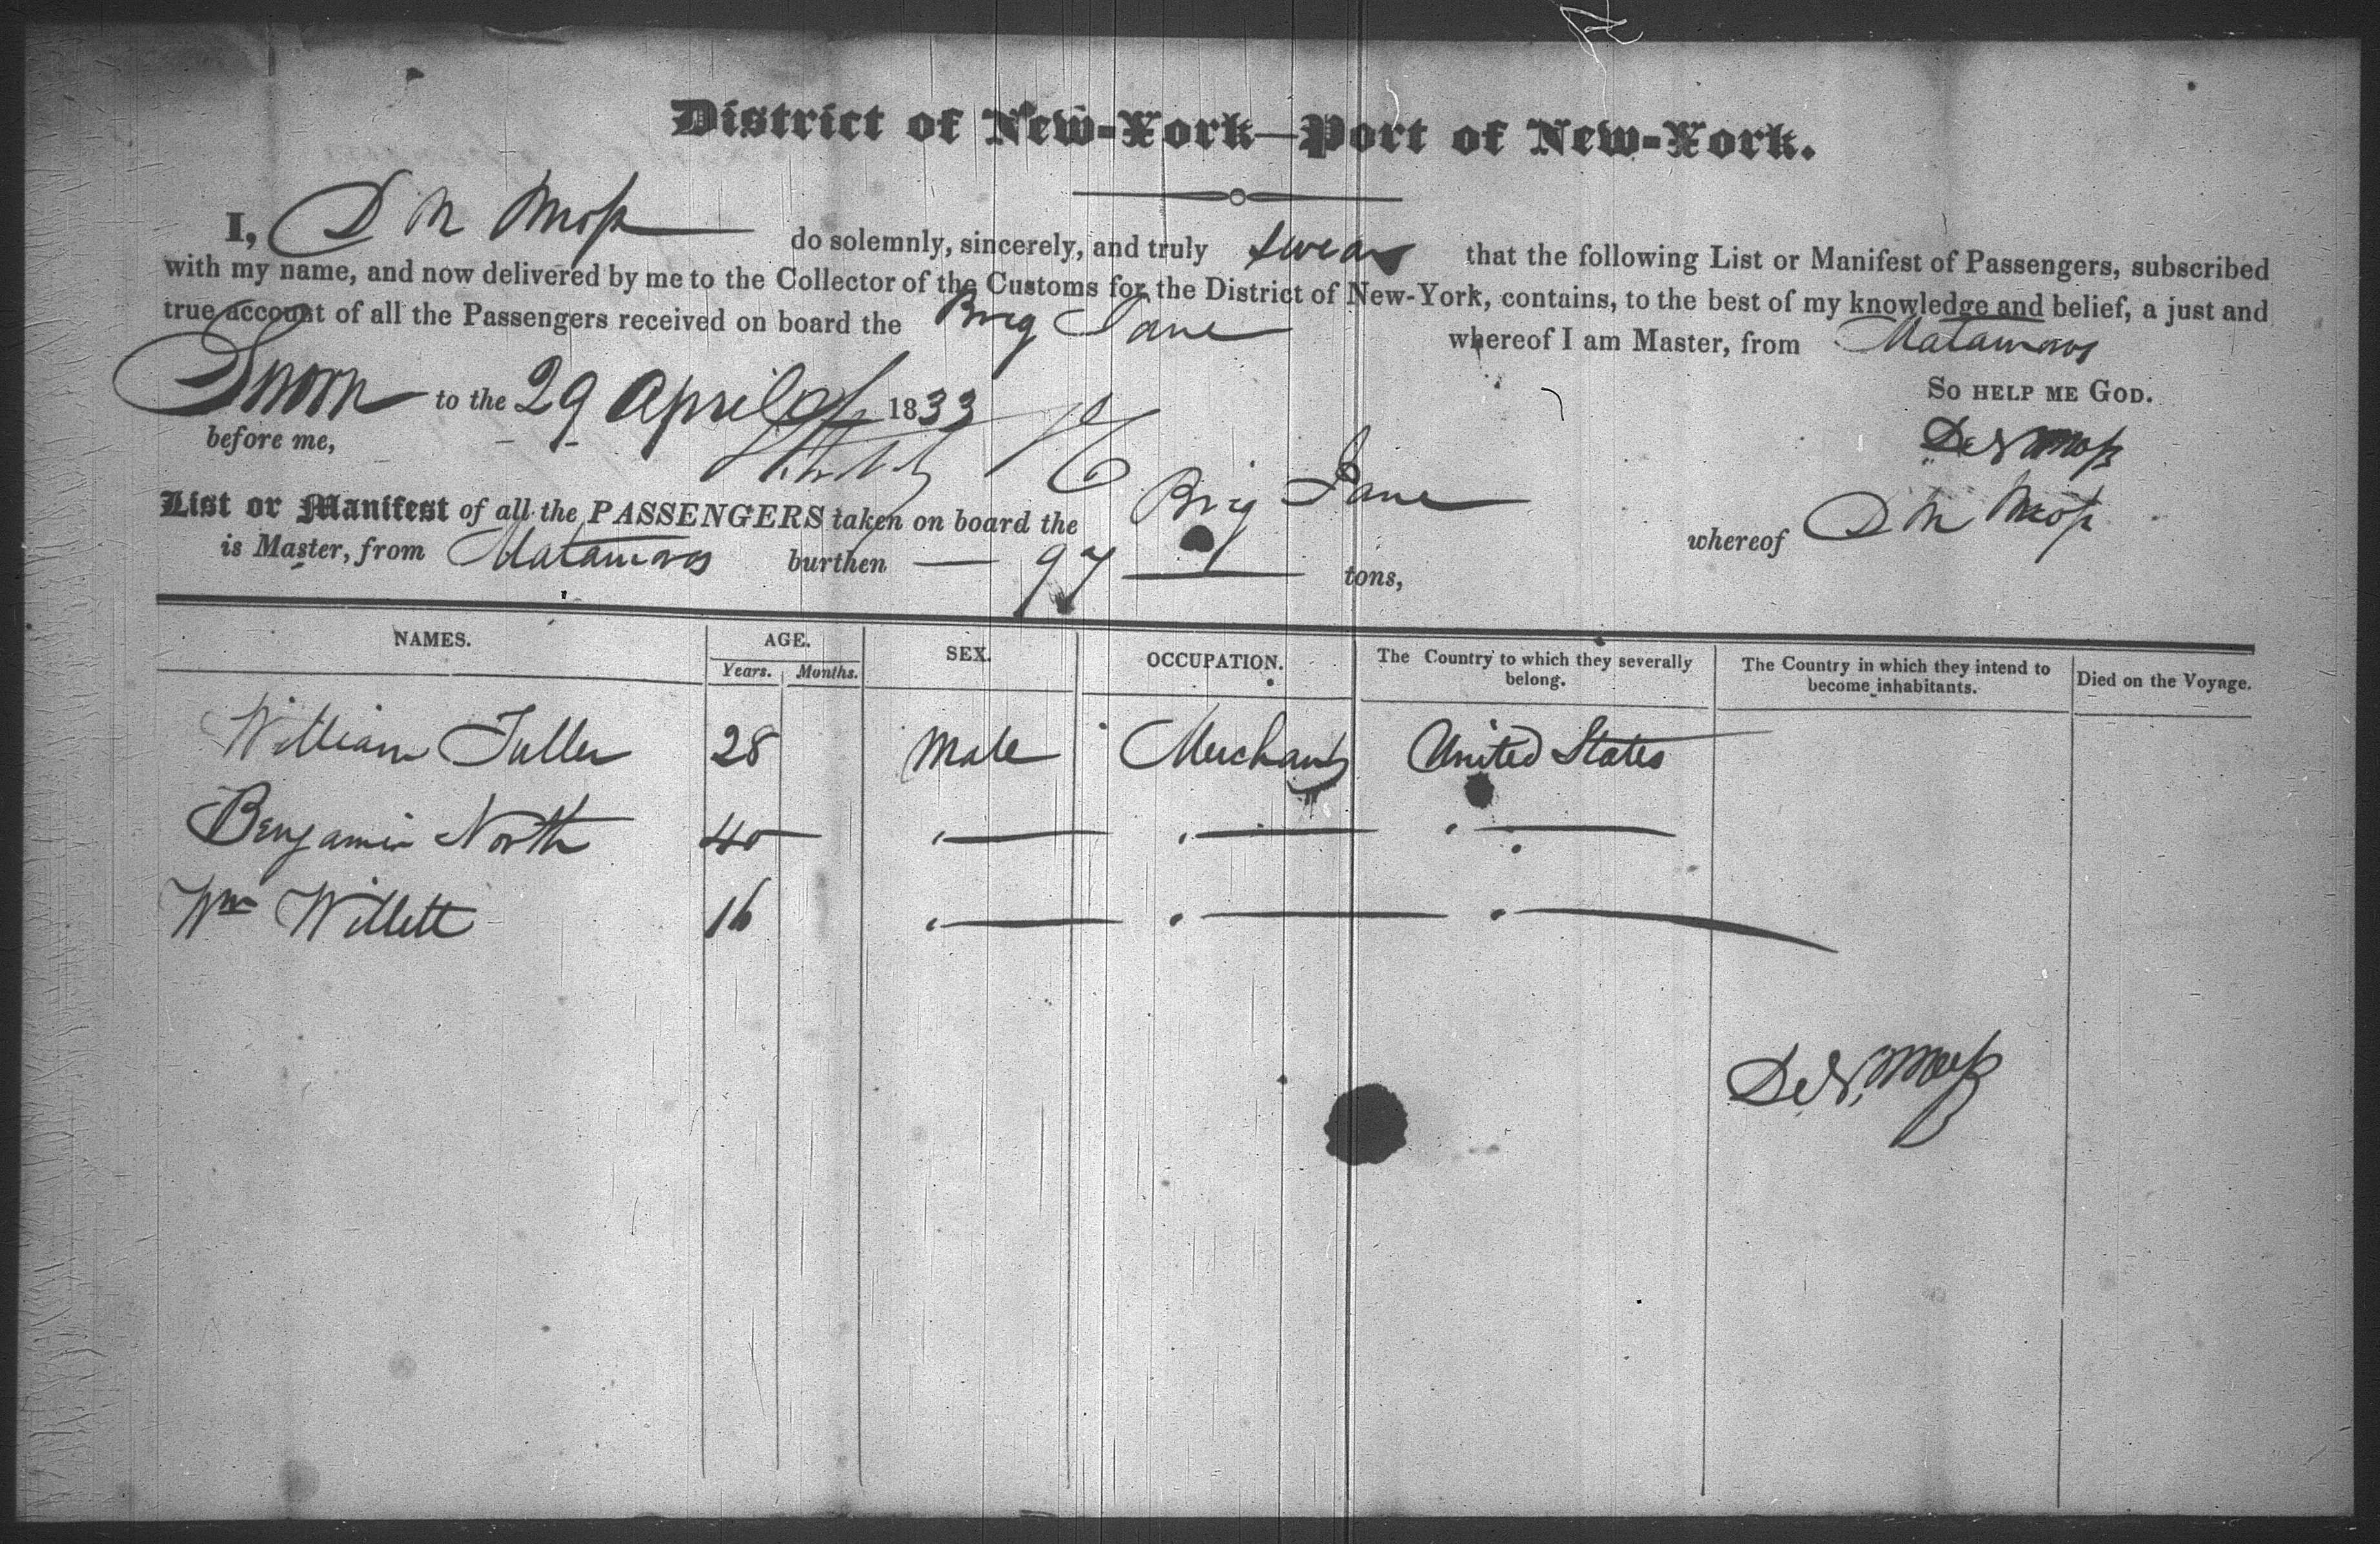 District of New-York—Port of New-York.
I, D N Moss do solemnly, sincerely, and truly swear that the following List or Manifest of Passengers, subscribed
with my name, and now delivered by me to the Collector of the Customs for the District of New-York, contains, to the best of my knowledge and belief, a just and
true account of all the Passengers received on board the Brig Jane whereof I am Master, from Matamoros
Sworn to the 29 April 1833
So help me God.
before me,
D N Moss
List or Manifest of all the PASSENGERS taken on board the Brig Jane whereof D N Moss
is Master, from Matamoros burthen — 97 — tons,
NAMES. AGE. SEX. OCCUPATION. The Country to which they severally belong. The Country in which they intend to become inhabitants. Died on the Voyage.
Years. Months.
William Fuller 28 Male Merchant United States
Benjamin North 40 " — " — " —
Wm Willett 16 " — " — " —
D N, Moss